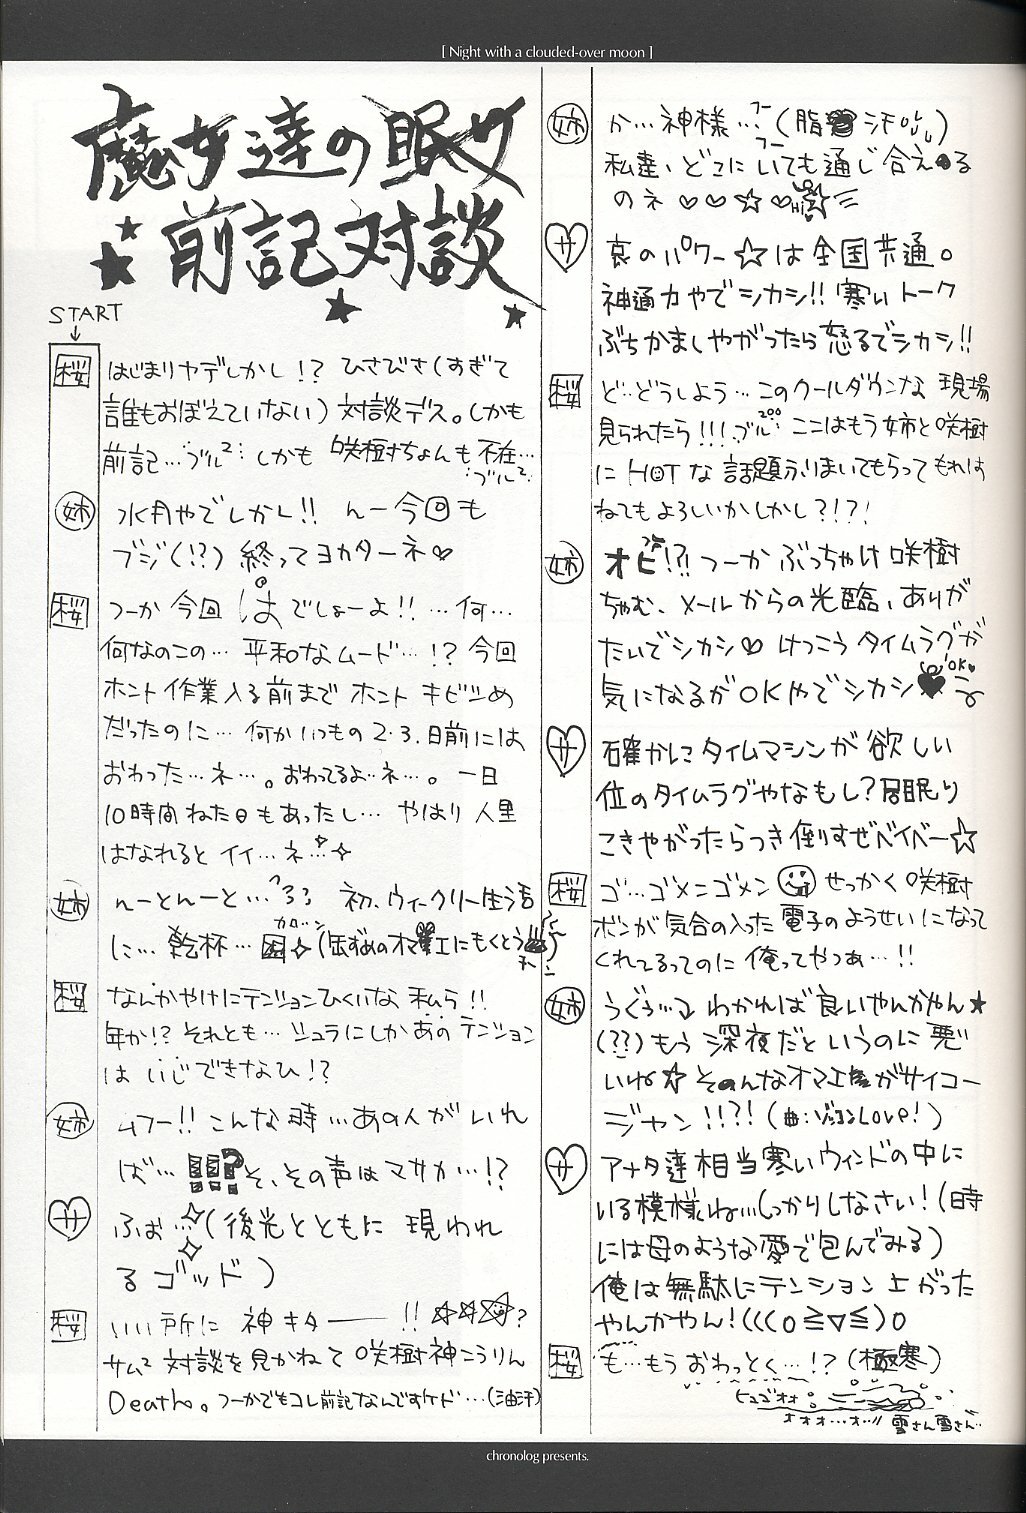 [ Night with a clouded-over moon ]
魔女達の眠り
前記対談
START
桜 はじまりヤデしかし!? ひさびさ(すぎて
誰もおぼえていない) 対談デス。しかも
前記…ブル² しかも 咲樹ちょんも不在…
ブル²
姉 水月やでしかし!! んー今回も
ブジ(!?) 終ってヨカターネ♡
桜 つーか 今回 はでしょーよ!! …何…
何なのこの… 平和なムード…!? 今回
ホント作業入る前まで ホント キビシめ
だったのに… 何かいつもの 2・3.日前には
おわった…ネ…。おわってるよ…ネ…。一日
10時間ねた日もあったし… やはり 人里
はなれると イイ…ネ…
姉 んーとんーと… 初、ウィークリー生活
に… 乾杯…
カローン
桜 なんかやけにテンションひくいな 私ら!!
年か!? それとも… シュラにしかあの テンション
は いじできなひ!?
姉 ムフー!! こんな時…あの人が いれ
ば… !!!? そ、その声は マサカ…!?
サ ふぉ…(後光とともに 現われ
る ゴッド)
桜 いい所に 神キター——!! ☆☆☆?
サム² 対談を見かねて 咲樹神こうりん
Death。つーかでもコレ前記なんですケド…(油汗)
姉 か…神様…フー(脂 汗)
フー
私達、どこにいても通じ合える
のネ ♡♡☆♡
Hi
サ 哀のパワー☆は全国共通。
神通力やでシカシ!! 寒いトーク
ぶちかましやがったら怒るでシカシ!!
桜 ど…どうしよう…このクールダウンな 現場
見られたら!!! ブル… ここはもう姉と咲樹
に HOTな 話題ふりまいてもらって もれは
ねてもよろしいかしかし?!?!
姉 オビ!?! つーか ぶっちゃけ 咲樹
ちゃむ、メールからの光臨、ありが
たいでシカシ♡ けっこう タイムラグが
気になるが OKやでシカシ♥
OK♥
サ 確かに タイムマシンが 欲しい
位のタイムラグやなもし? 居眠り
こきやがったらつき倒すぜベイベー☆
桜 ゴ…ゴメンゴメン せっかく 咲樹
ポンが 気合の入った 電子のようせいになって
くれてるってのに 俺ってやつぁ…!!
姉 うぐぅ… わかれば 良いやんかやん★
(??) もう 深夜だと いうのに 悪
いね☆ そのんなオマエがサイコー
ジャン!!?! (曲:ゾッコンLove!)
サ アナタ達相当寒いウィンドの中に
いる模様ね…しっかりしなさい! (時
には母のような愛で包んでみる)
俺は無駄にテンション上がった
やんかやん!(((o≧▽≦)o
桜 も…もう おわっとく…!? (極寒)
ヒュゴオオ
オオオ…オ…!! 雪さん雪さん…
chronolog presents.